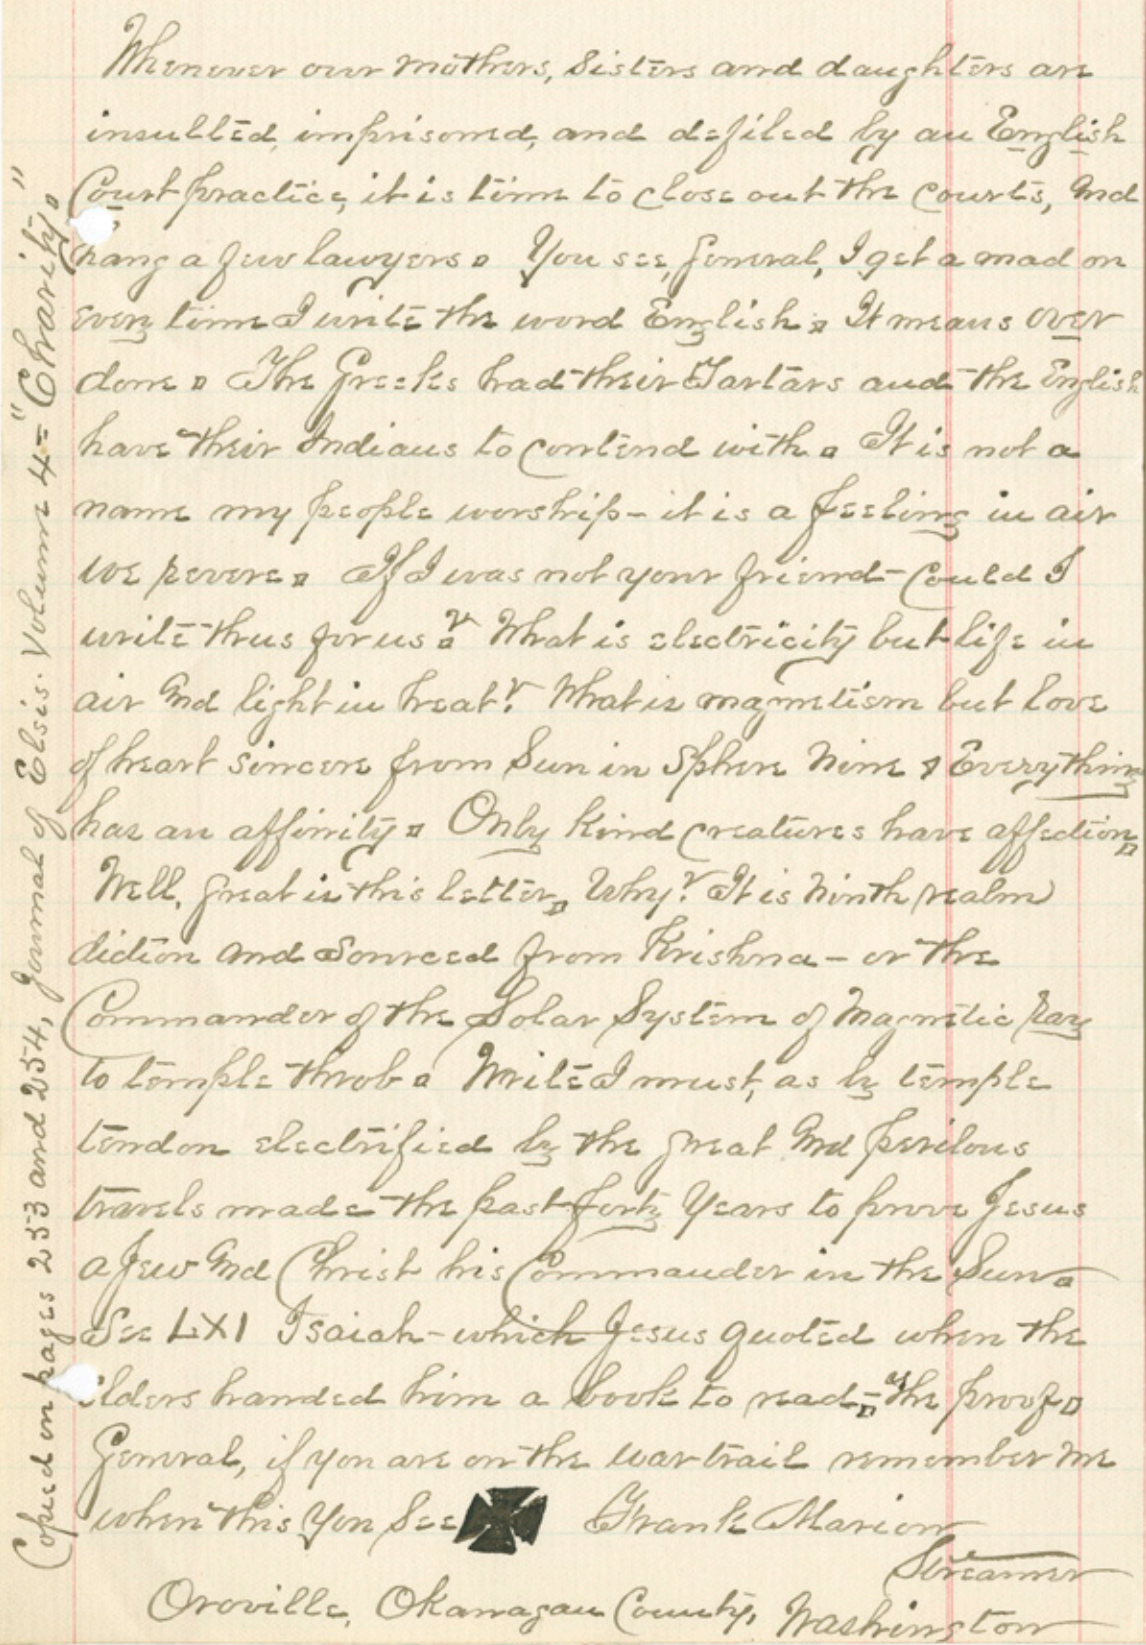 Whenever our mothers, Sisters and daughters are
insulted, imprisoned, and defiled by an English
Court practice, it is time to close out the courts, and
hang a few lawyers. You see, General, I get a mad on
every time I write the word English. It means over
done. The Greeks had their Tartars and the English
have their Indians to contend with. It is not a
name my people worship - it is a feeling in air
we revere. If I was not your friend - could I
write thus for us? What is electricity but life in
air and light in heat? What is magnetism but love
of heart sincere from Sun in Sphere Nine? Everything
has an affinity. Only kind creatures have affection.
Well, great is this letter. Why? It is Ninth realm
diction and Sourced from Krishna - or the
Commander of the Solar System of Magnetic Ray
to temple throb. Write I must, as by temple
tendon electrified by the great and perilous
travels made the past forty Years to prove Jesus
a Jew and Christ his Commander in the Sun.
See LXI Isaiah - which Jesus quoted when the
elders handed him a book to read - as the proof.
General, if you are on the war trail remember me
when this You See ✠ Frank Marion
Streamer
Oroville, Okanagan County, Washington
Copied on pages 253 and 254, Journal of Elsis. Volume 4 = "Charity."